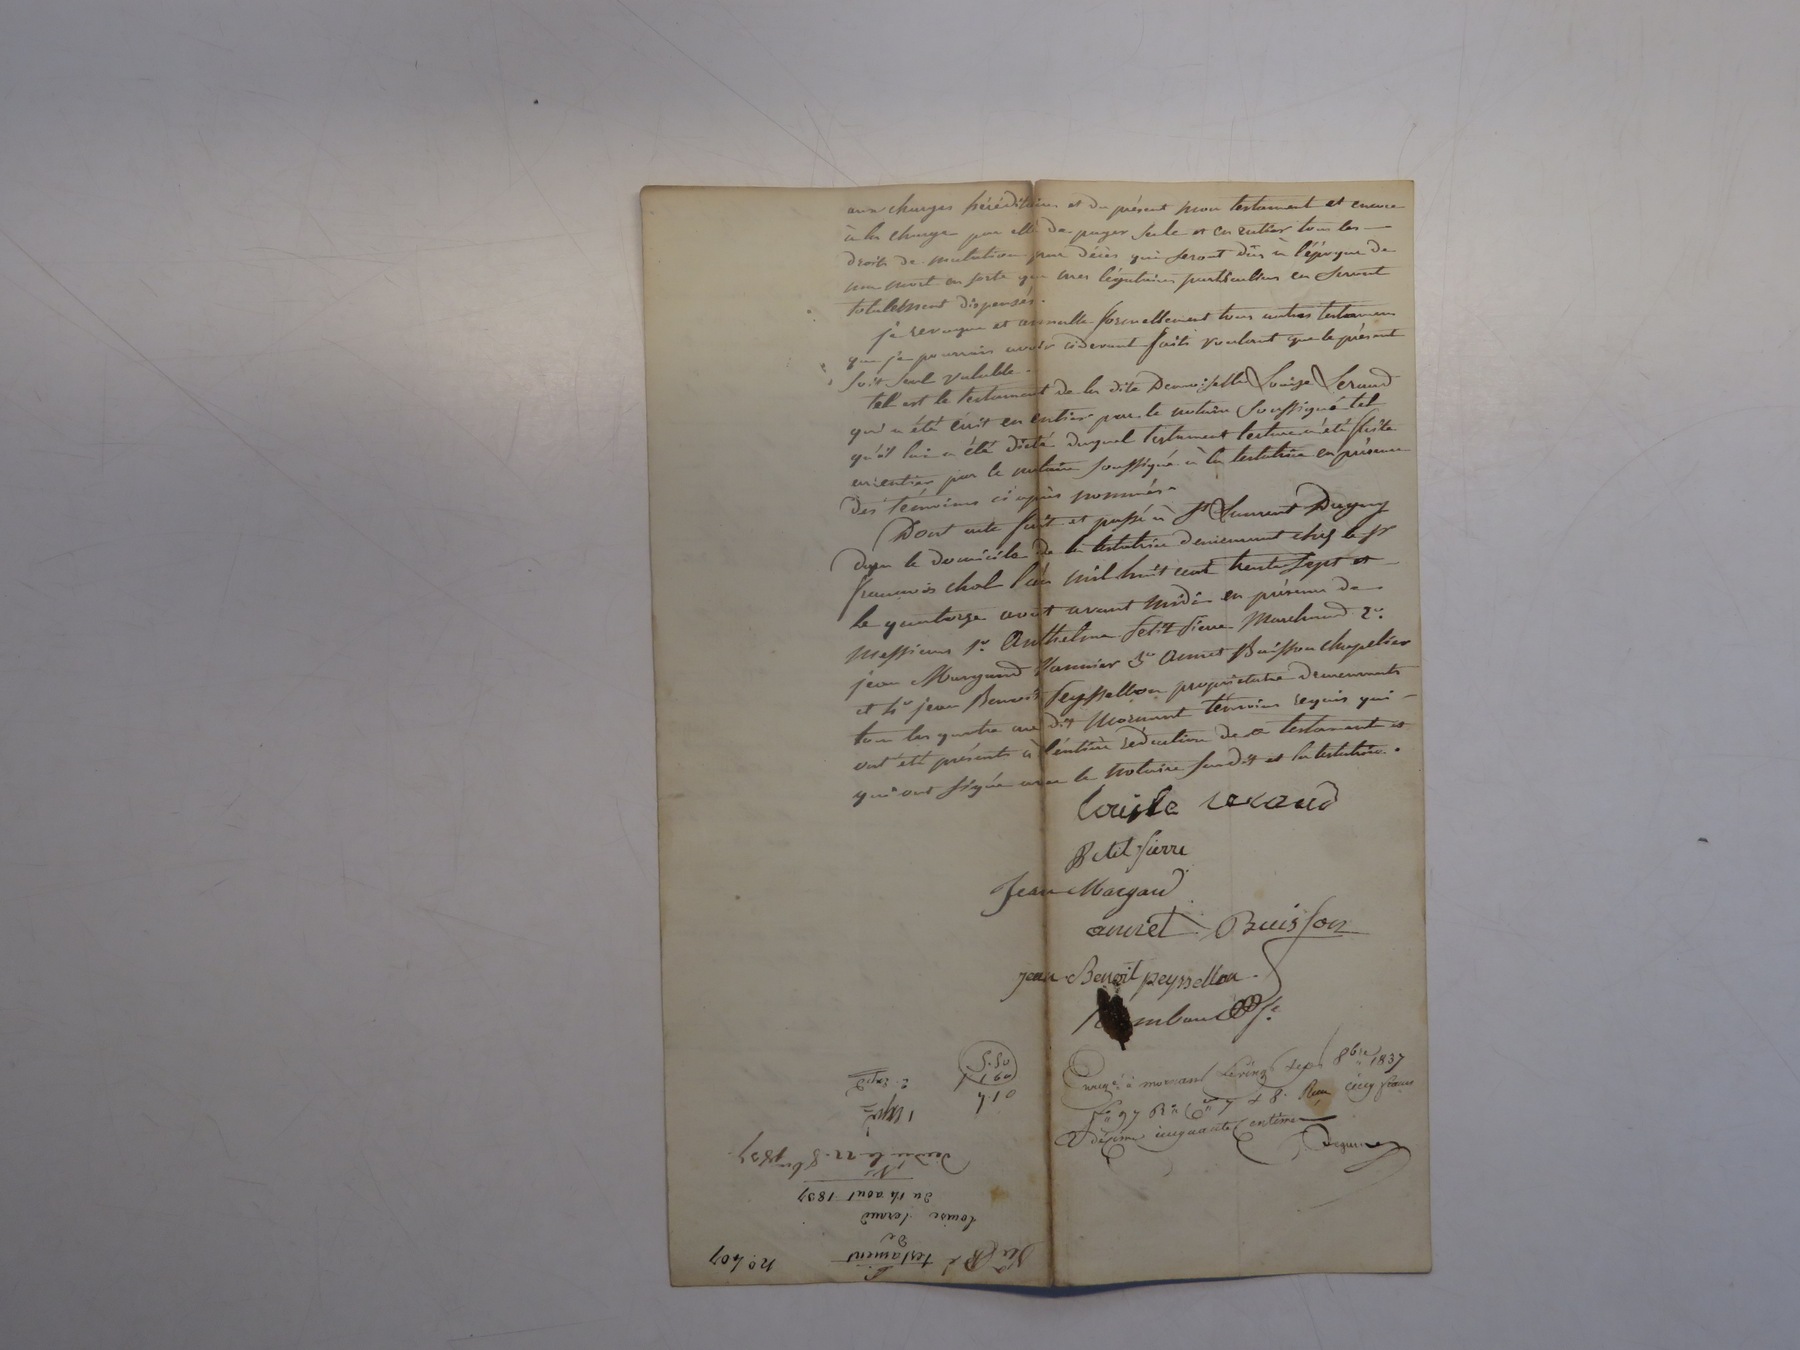 aux charges héréditaires et du présent mon testament et encore
à la charge par elle de payer seule et en entier tous les
droits de mutation par décès qui seront dûs à l'époque de
ma mort en sorte que mes légataires particuliers en seront
totalement dispensés.
je revoque et annulle formellement tous autres testamens
que je pourrais avoir cidevant faits voulant que le présent
soit seul valable.
tel est le testament de la dite Demoiselle Louise Seraud
qui a été écrit en entier par le notaire soussigné tel
qu'il lui a été dicté duquel testament lecture a été faite
en entier par le notaire soussigné à la testatrice en présence
des témoins ci après nommés.
Dont acte fait et passé à St Laurent Dagny
dans le domicile de la testatrice demeurant chez le sr
françois chol l'an mil huit cent trente sept et
le quatorze août avant midi en présence de
Messieurs 1er Anthelme Petit pierre Marchand 2e
jean Margand Vannier 3e Annet Buisson chapelier
et 4e jean Benoit Peyssellon propriétaire demeurants
tous les quatre au dit Mornant témoins requis qui
ont été présents à l'entière rédaction de ce testament et
qui ont signé avec le notaire susdit et la testatrice.
Louise seraud
Petit pierre
Jean Margand
annet Buisson
jean Benoit peyssellon
Enregé à mornant le vingt sept 8bre 1837
fo 97 Ro Ces 7 & 8. Reçu cinq francs
décime cinquante centimes
5.50
1 60
7.10
2. Exp
Du 14 aout 1837
Louise seraud
De
testament
No. 407